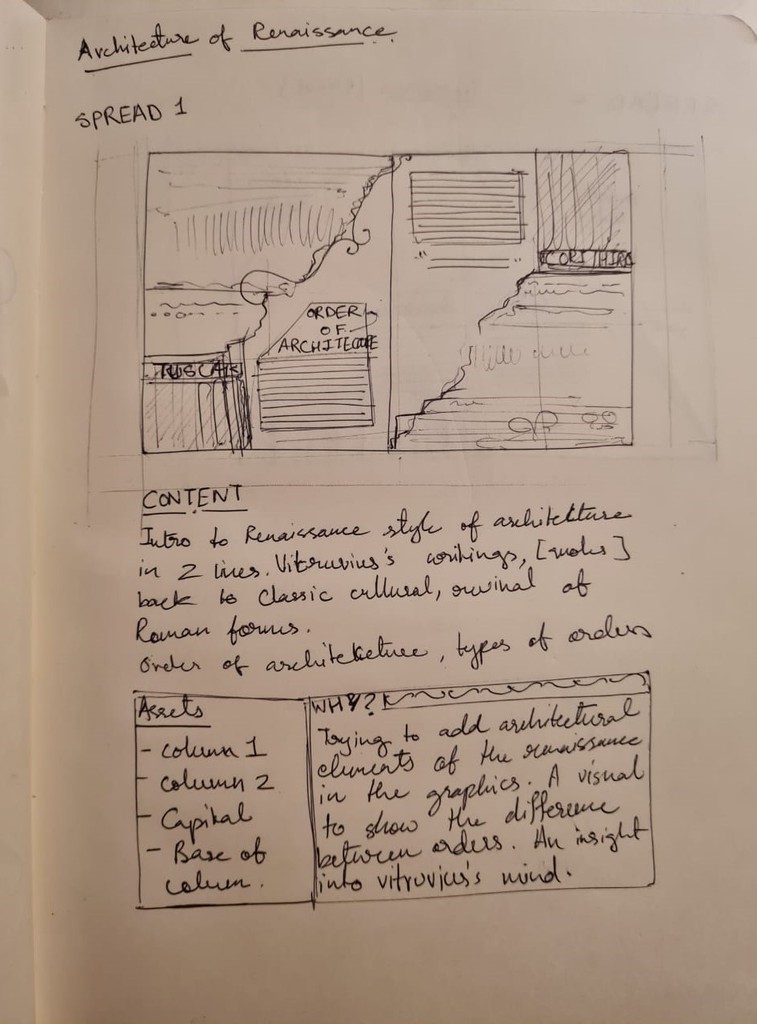 Architecture of Renaissance
SPREAD 1
CORITHIRN
ORDER
OF
ARCHITECTURE
TUSCAN
CONTENT
Intro to Renaissance style of architekture
in 2 lines. Vitruvius's writings, [quotes]
back to Classic cultural, revival of
Roman forms.
Order of architekcture, types of orders
Assets
- column 1
- column 2
- Capital
- Base of
column.
WHY?
Trying to add architectural
elements of the renaissance
in the graphics. A visual
to show the difference
between orders. An insight
into vitruvius's mind.